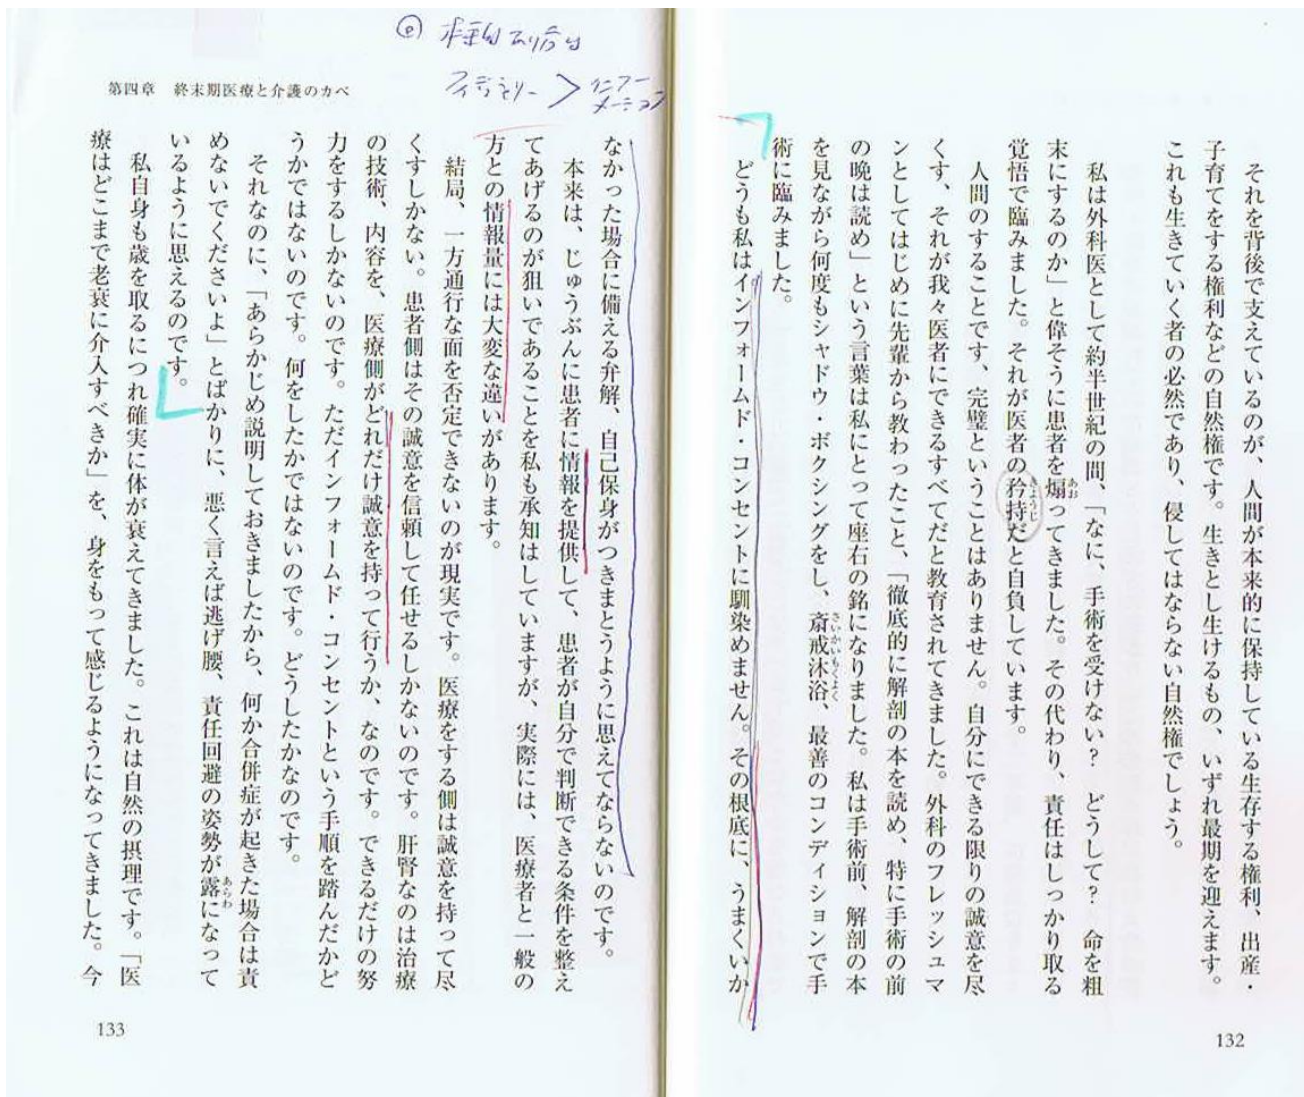 それを背後で支えているのが、人間が本来的に保持している生存する権利、出産・
子育てをする権利などの自然権です。生きとし生けるもの、いずれ最期を迎えます。
これも生きていく者の必然であり、侵してはならない自然権でしょう。
私は外科医として約半世紀の間、「なに、手術を受けない? どうして? 命を粗
末にするのか」と偉そうに患者を煽ってきました。その代わり、責任はしっかり取る
あお
覚悟で臨みました。それが医者の矜持だと自負しています。
きょうじ
人間のすることです、完璧ということはありません。自分にできる限りの誠意を尽
くす、それが我々医者にできるすべてだと教育されてきました。外科のフレッシュマ
ンとしてはじめに先輩から教わったこと、「徹底的に解剖の本を読め、特に手術の前
の晩は読め」という言葉は私にとって座右の銘になりました。私は手術前、解剖の本
を見ながら何度もシャドウ・ボクシングをし、斎戒沐浴、最善のコンディションで手
さいかいもくよく
術に臨みました。
どうも私はインフォームド・コンセントに馴染めません。その根底に、うまくいか
132
第四章 終末期医療と介護のカベ
フィデュシャリー > インフォーメーション
なかった場合に備える弁解、自己保身がつきまとうように思えてならないのです。
本来は、じゅうぶんに患者に情報を提供して、患者が自分で判断できる条件を整え
てあげるのが狙いであることを私も承知はしていますが、実際には、医療者と一般の
方との情報量には大変な違いがあります。
結局、一方通行な面を否定できないのが現実です。医療をする側は誠意を持って尽
くすしかない。患者側はその誠意を信頼して任せるしかないのです。肝腎なのは治療
の技術、内容を、医療側がどれだけ誠意を持って行うか、なのです。できるだけの努
力をするしかないのです。ただインフォームド・コンセントという手順を踏んだかど
うかではないのです。何をしたかではないのです。どうしたかなのです。
それなのに、「あらかじめ説明しておきましたから、何か合併症が起きた場合は責
めないでくださいよ」とばかりに、悪く言えば逃げ腰、責任回避の姿勢が露になって
あらわ
いるように思えるのです。
私自身も歳を取るにつれ確実に体が衰えてきました。これは自然の摂理です。「医
療はどこまで老衰に介入すべきか」を、身をもって感じるようになってきました。今
133